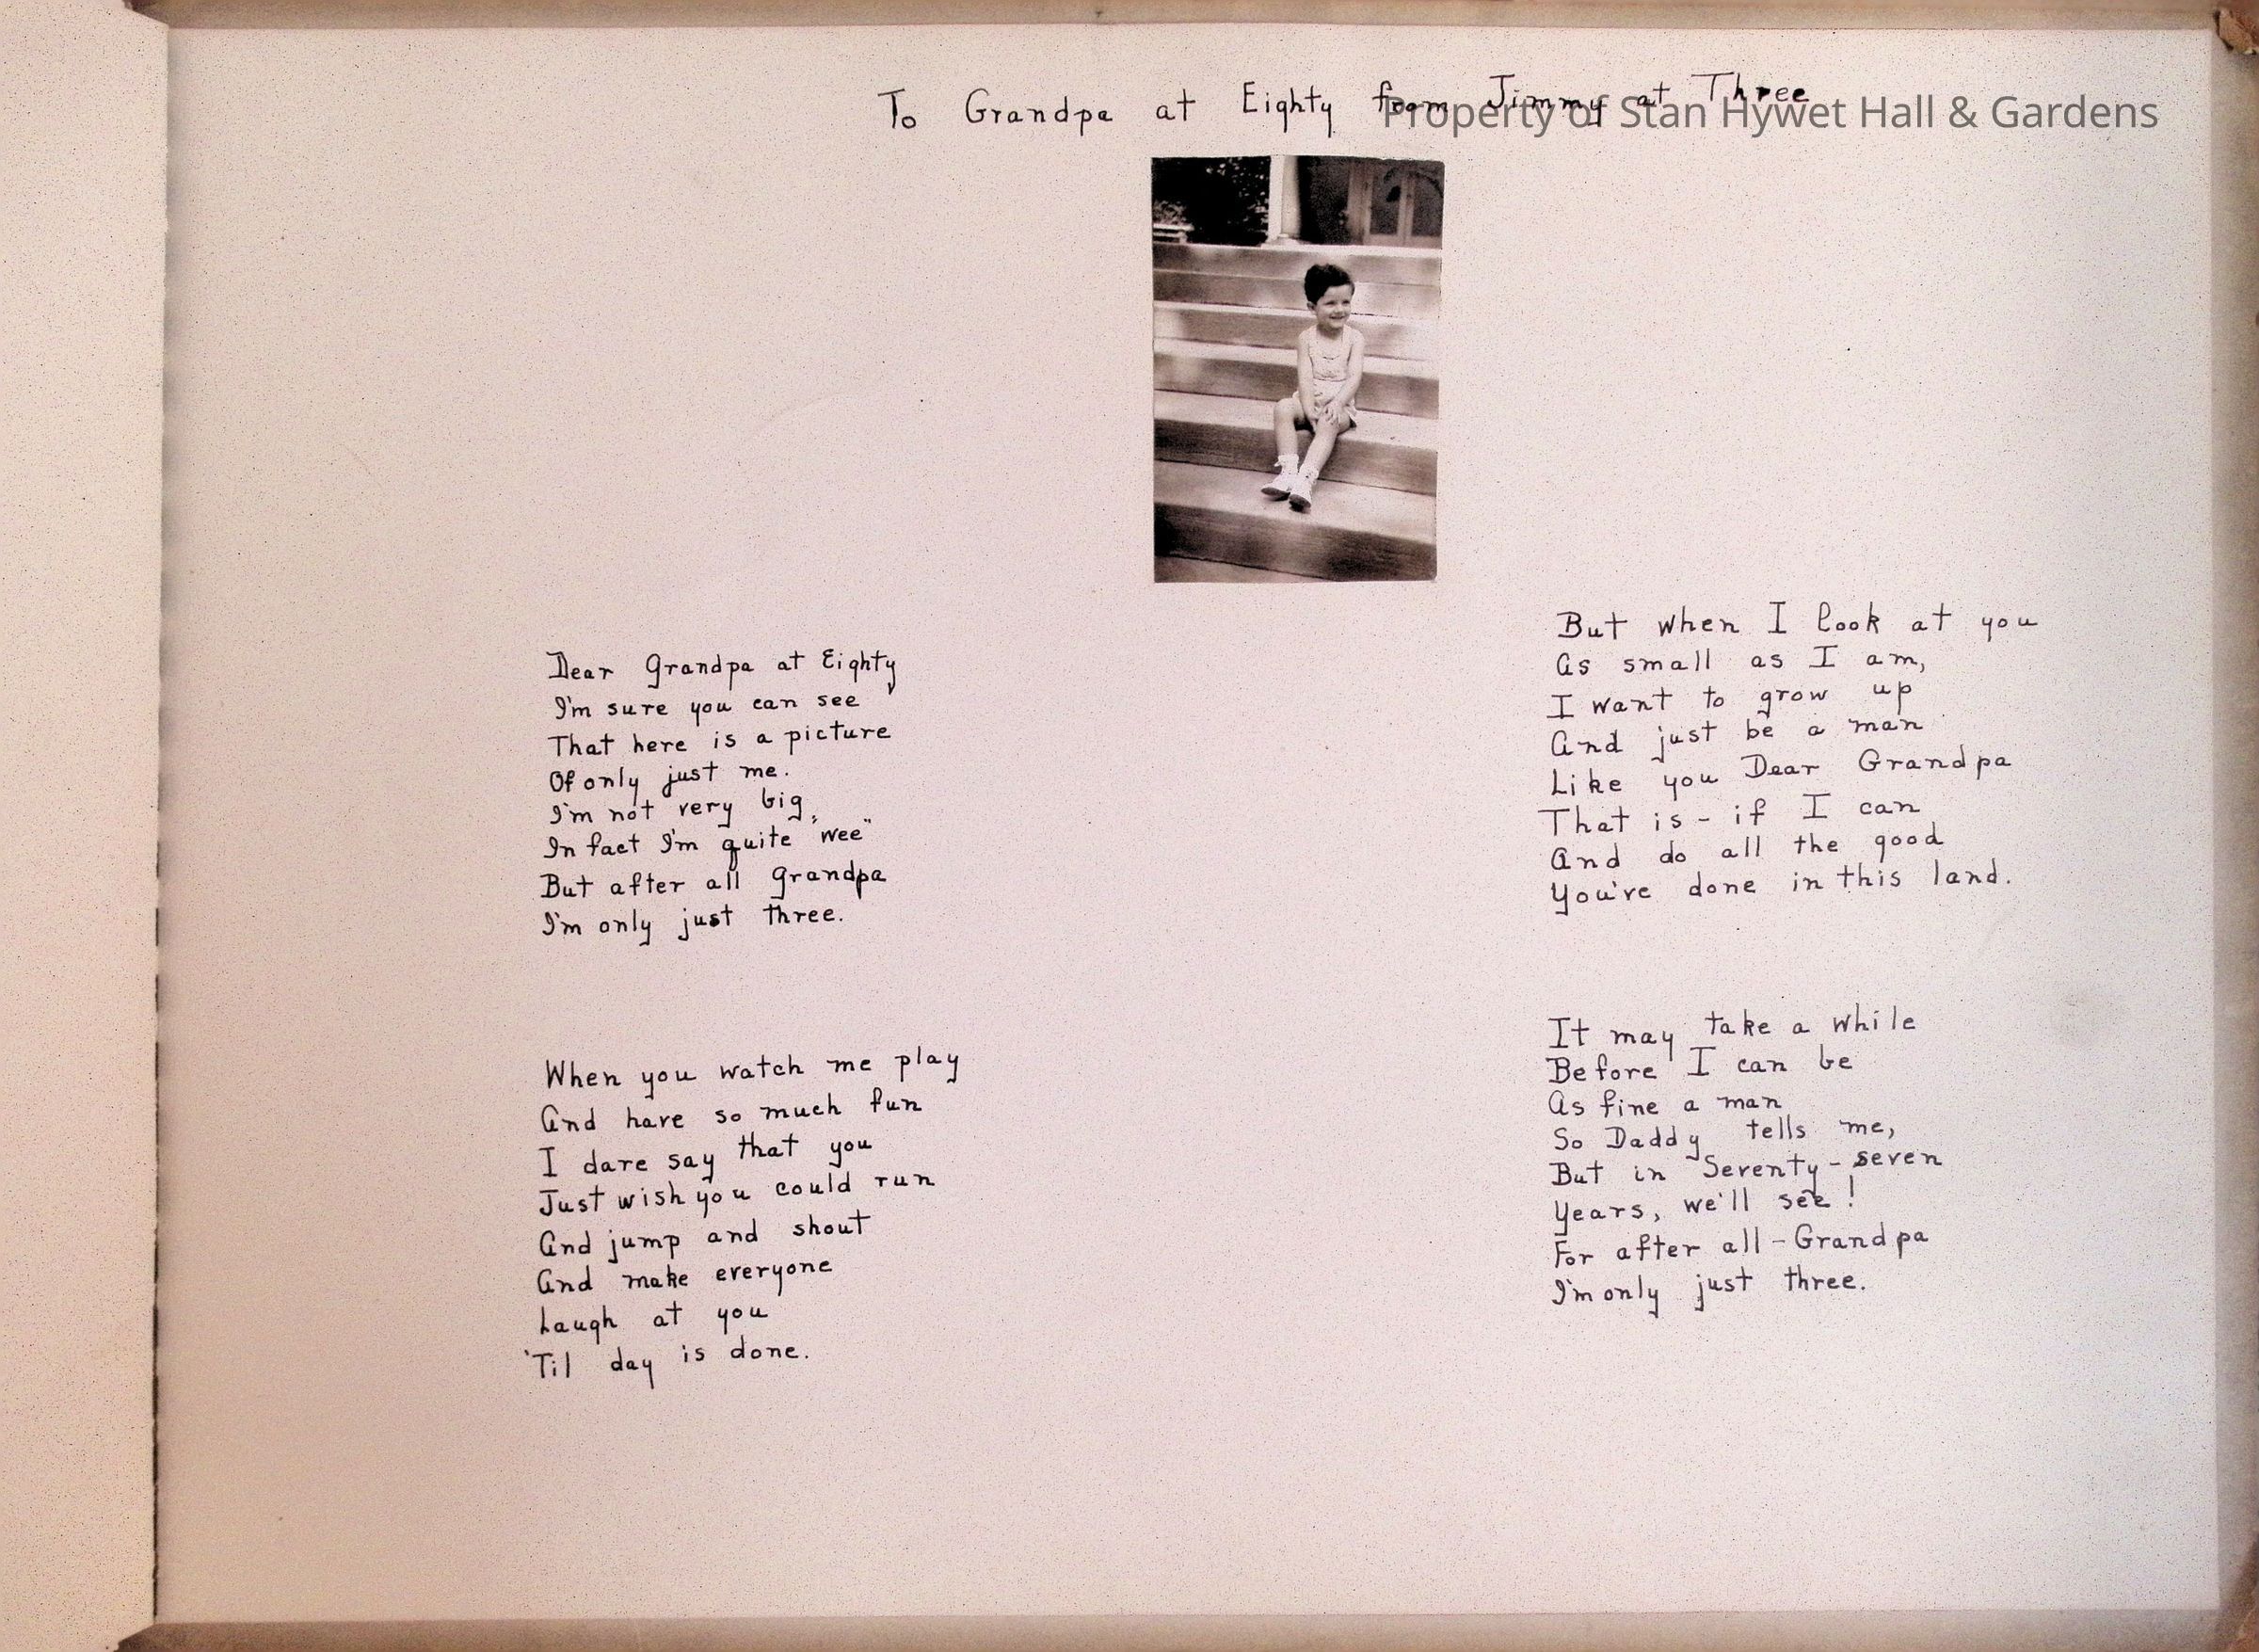 To Grandpa at Eighty from Jimmy at Three
Property of Stan Hywet Hall & Gardens
Dear Grandpa at Eighty
I'm sure you can see
That here is a picture
Of only just me.
I'm not very big,
In fact I'm quite "wee"
But after all Grandpa
I'm only just three.
When you watch me play
And have so much fun
I dare say that you
Just wish you could run
And jump and shout
And make everyone
Laugh at you
'Til day is done.
But when I look at you
As small as I am,
I want to grow up
And just be a man
Like you Dear Grandpa
That is - if I can
And do all the good
You've done in this land.
It may take a while
Before I can be
As fine a man
So Daddy tells me,
But in Seventy-seven
Years, we'll see!
For after all - Grandpa
I'm only just three.